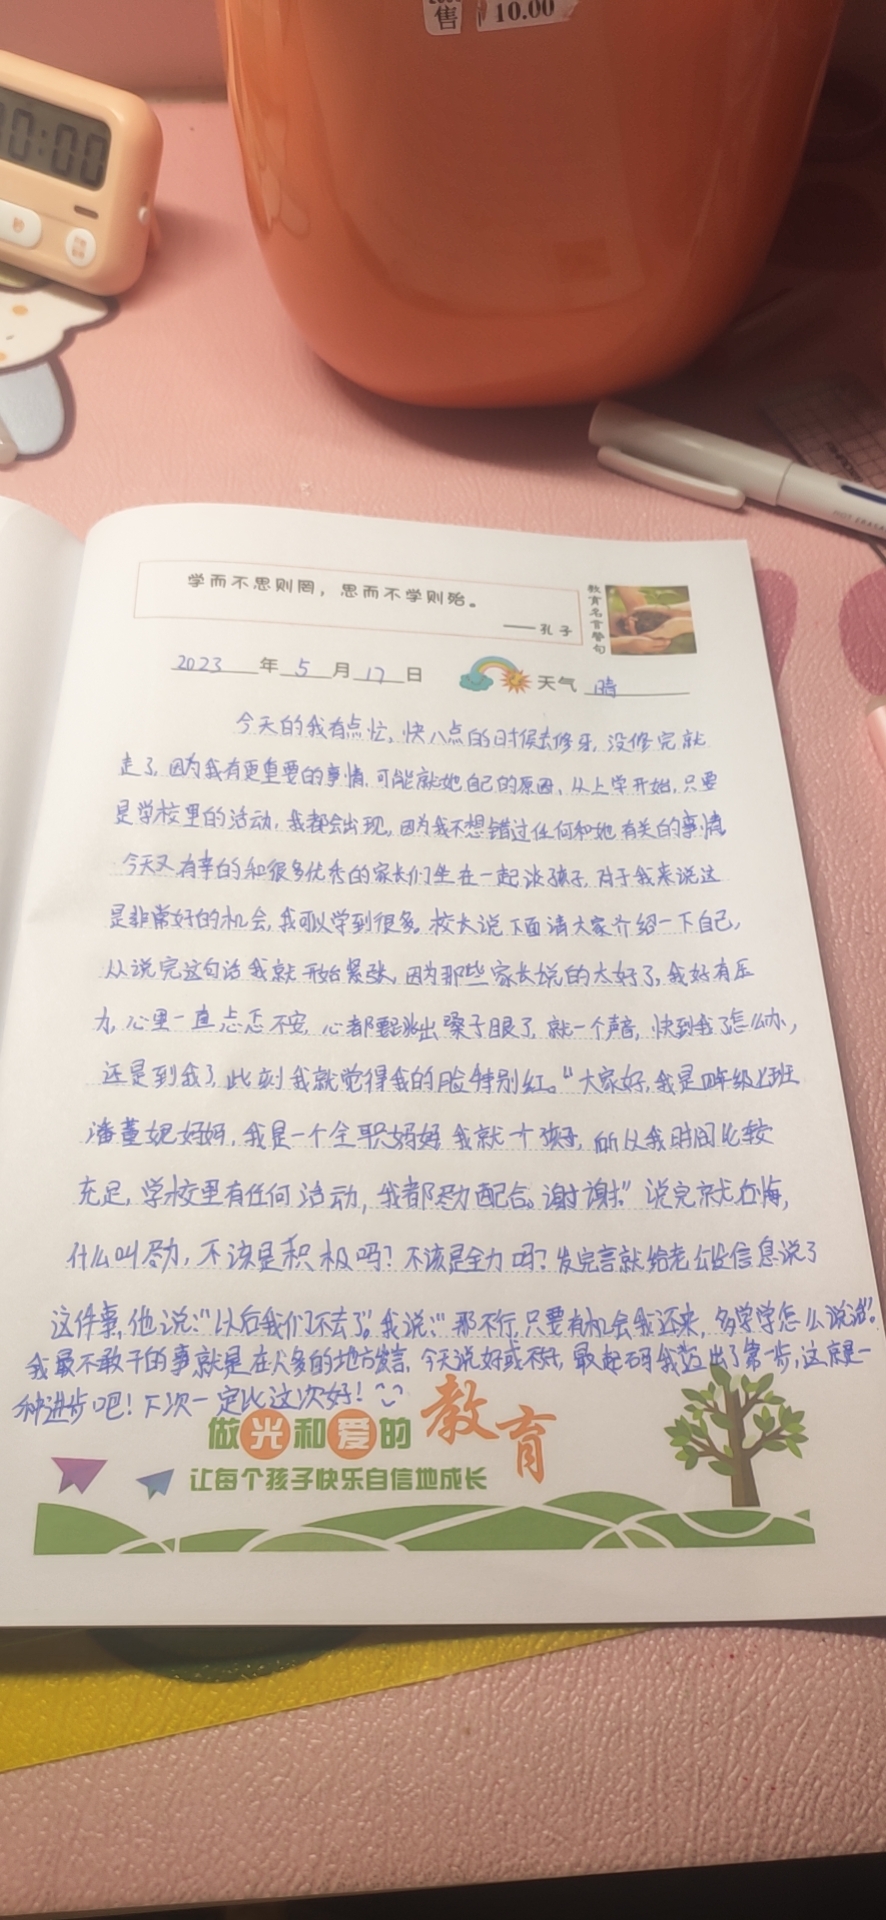 售 10.00
00:00
秒
学而不思则罔，思而不学则殆。
——孔子
教育名言警句
2023年5月17日 天气 晴
今天的我有点忙，快八点的时候去修牙，没修完就
走了，因为我有更重要的事情，可能就她自己的原因，从上学开始，只要
是学校里的活动，我都会出现，因为我不想错过任何和她有关的事情
今天又有幸的和很多优秀的家长们坐在一起谈孩子，对于我来说这
是非常好的机会，我可以学到很多。校长说下面请大家介绍一下自己，
从说完这句话我就开始紧张，因为那些家长说的太好了，我好有压
力，心里一直忐忑不安，心都要跳出嗓子眼了，就一个声音，快到我了怎么办，
还是到我了，此刻我就觉得我的脸特别红。“大家好，我是四年级班
潘董妮妈妈，我是一个全职妈妈 我就一个孩子，所以我时间比较
充足，学校里有任何活动，我都尽力配合。谢谢” 说完就后悔，
什么叫尽力，不该是积极吗？不该是全力吗？发完言就给老公发信息说了
这件事，他说：“以后我们不去了”。我说：“那不行，只要有机会我还来，多学学怎么说话”。
我最不敢干的事就是在人多的地方发言，今天说好或不好，最起码我迈出了第一步，这就是一
种进步吧！下次一定比这次好！
做光和爱的教育
让每个孩子快乐自信地成长